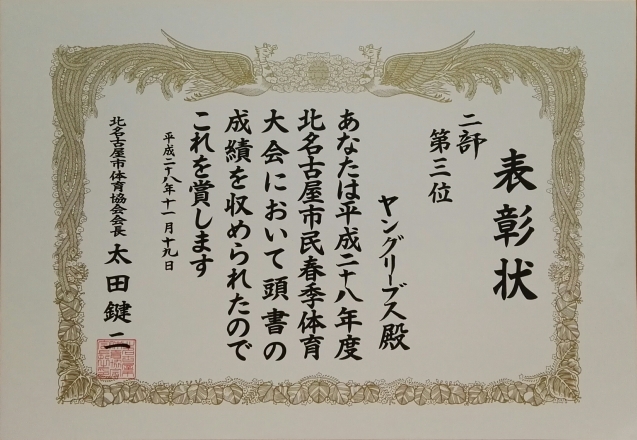 表彰状
二部
第三位
ヤングリーブス殿
あなたは平成二十八年度
北名古屋市民春季体育
大会において頭書の
成績を収められたので
これを賞します
平成二十八年十一月十九日
北名古屋市体育協会会長 太田鍵二